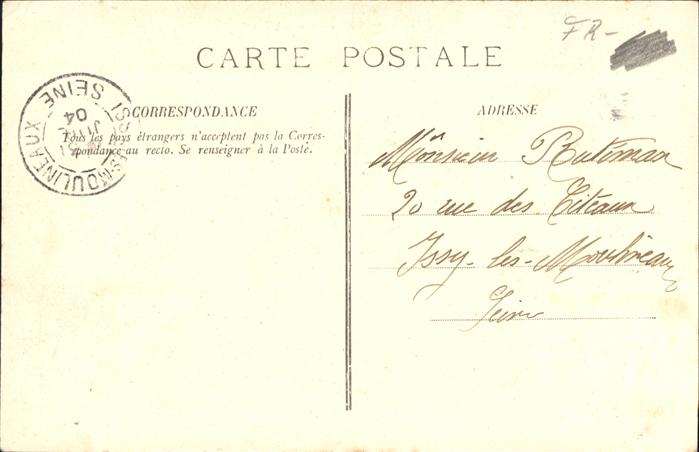 FR-
CARTE POSTALE
CORRESPONDANCE
Tous les pays étrangers n'acceptent pas la Corres-
pondance au recto. Se renseigner à la Poste.
ISSY-LES-MOULINEAUX
SEINE
04
ADRESSE
Monsieur
20 rue des Citeaux
Issy-les-Moulineaux
Seine